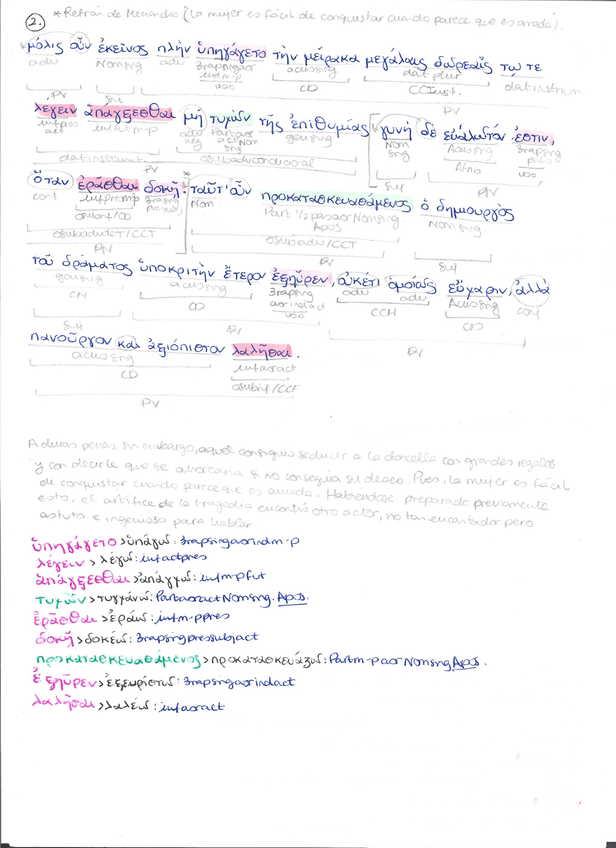 2. * Refrán de Menandro (La mujer es fácil de conquistar cuando parece que es amada).
μόλις οὖν ἐκεῖνος πλὴν ὑπηγάγετο τὴν μείρακα μεγάλαις δωρεαῖς τῷ τε
adv Nom sing adv 3rapsingaor indm-p CD dat plur dat instrum
VBO acusing CC Inst.
PV Suj PV
λέγειν ἀπάγξεσθαι μὴ τυχὼν τῆς ἐπιθυμίας γυνὴ δὲ εὐάλωτόν ἐστιν,
inf pres act inf fut m-p adv neg Part aor act Nom sing gensing Nom sing Acusing 3rapsing pres
VBO
dat instrum osubadvcondicional Atrib
PV Suj PV
ὅταν ἐρᾶσθαι δοκῇ· ταῦτ' οὖν προκατασκευασάμενος ὁ δημιουργὸς
conj inf pres m-p 3rapsing Nom Part Nom sing Nom sing
Apos
osubinf/CD
osubadv/CCT Suj
osubadvdeT/CCT
PV PV
τοῦ δράματος ὑποκριτὴν ἕτερον ἐξηῦρεν, οὐκέτι ὁμοίως εὔχαριν, ἀλλὰ
gensing acusing 3rapsing adv adv Acusing conj
aor ind act
VBO
CN CD CCM CD
Suj PV PV
πανοῦργον καὶ ἀξιόπιστον λαλῆσαι.
acusing inf aor act
CD osubinf/CCF
PV
A duras penas, sin embargo, aquel consiguió seducir a la doncella con grandes regalos
y con decirle que se ahorcaría si no conseguía su deseo. Pues, la mujer es fácil
de conquistar cuando parece que es amada. Habiéndose preparado previamente
esto, el artífice de la tragedia encontró otro actor, no tan encantador pero
astuto e ingenioso para hablar
ὑπηγάγετο > ὑπάγω: 3rapsingaorindm-p
λέγειν > λέγω: infactpres
ἀπάγξεσθαι > ἀπάγχω: infm-pfut
τυχὼν > τυγχάνω: Partaoract Nomsing. Apos.
ἐρᾶσθαι > ἐράω: infm-ppres
δοκῇ > δοκέω: 3rapsingpressubjact
προκατασκευασάμενος > προκατασκευάζω: Partm-p aor Nomsing Apos.
ἐξηῦρεν > ἐξευρίσκω: 3rapsingaorindact
λαλῆσαι > λαλέω: infaoract